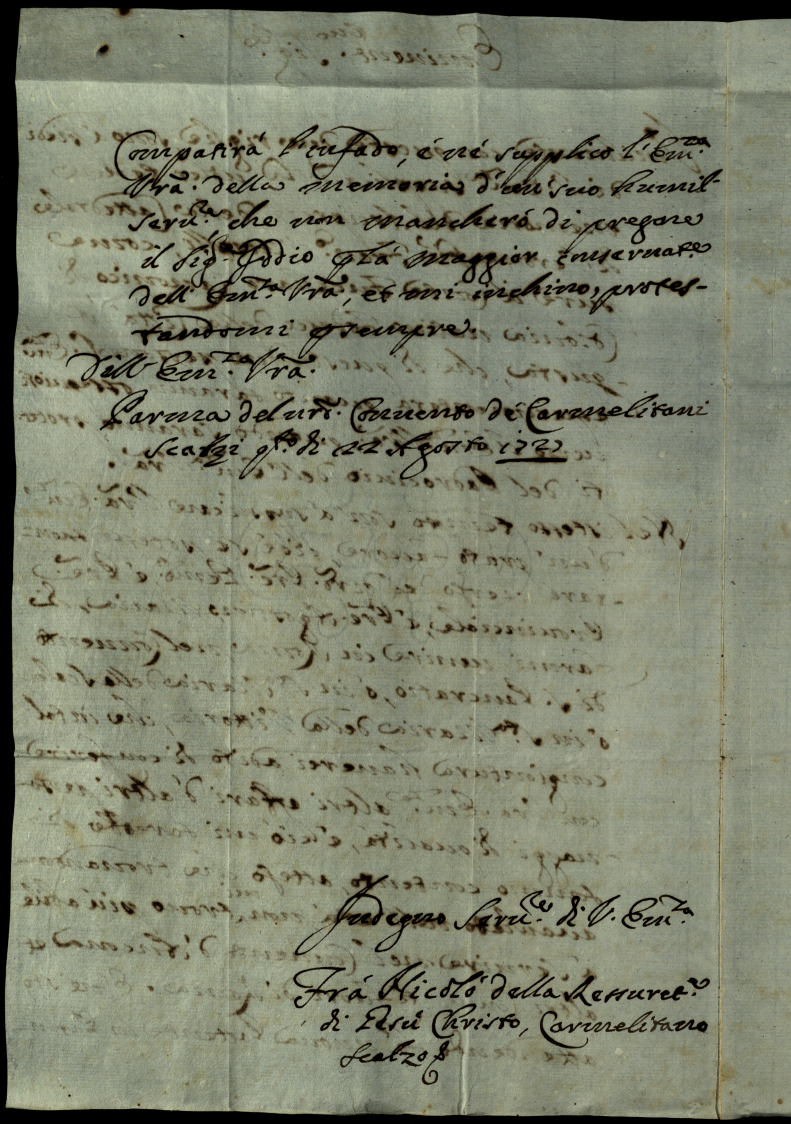 Compatirà l'infado, é né supplico l'Em.za
Vrã. della memoria d'un suo humil.
Seru.re che non mancherò di pregare
il Sig.re Iddio p la maggior conseruat.e
dell' Em.za Vrã, et mi inchino, protes-
tandomi p sempre.
Dell' Em.za Vrã.
Parma del nrõ. Conuento de Carmelitani
Scalzi q.to dì 22 Agosto 1727
Indegno Seru.re di V. Em.za
Frá Nicolò della Ressuret.e
di Iesù Christo, Carmelitano
Scalzo